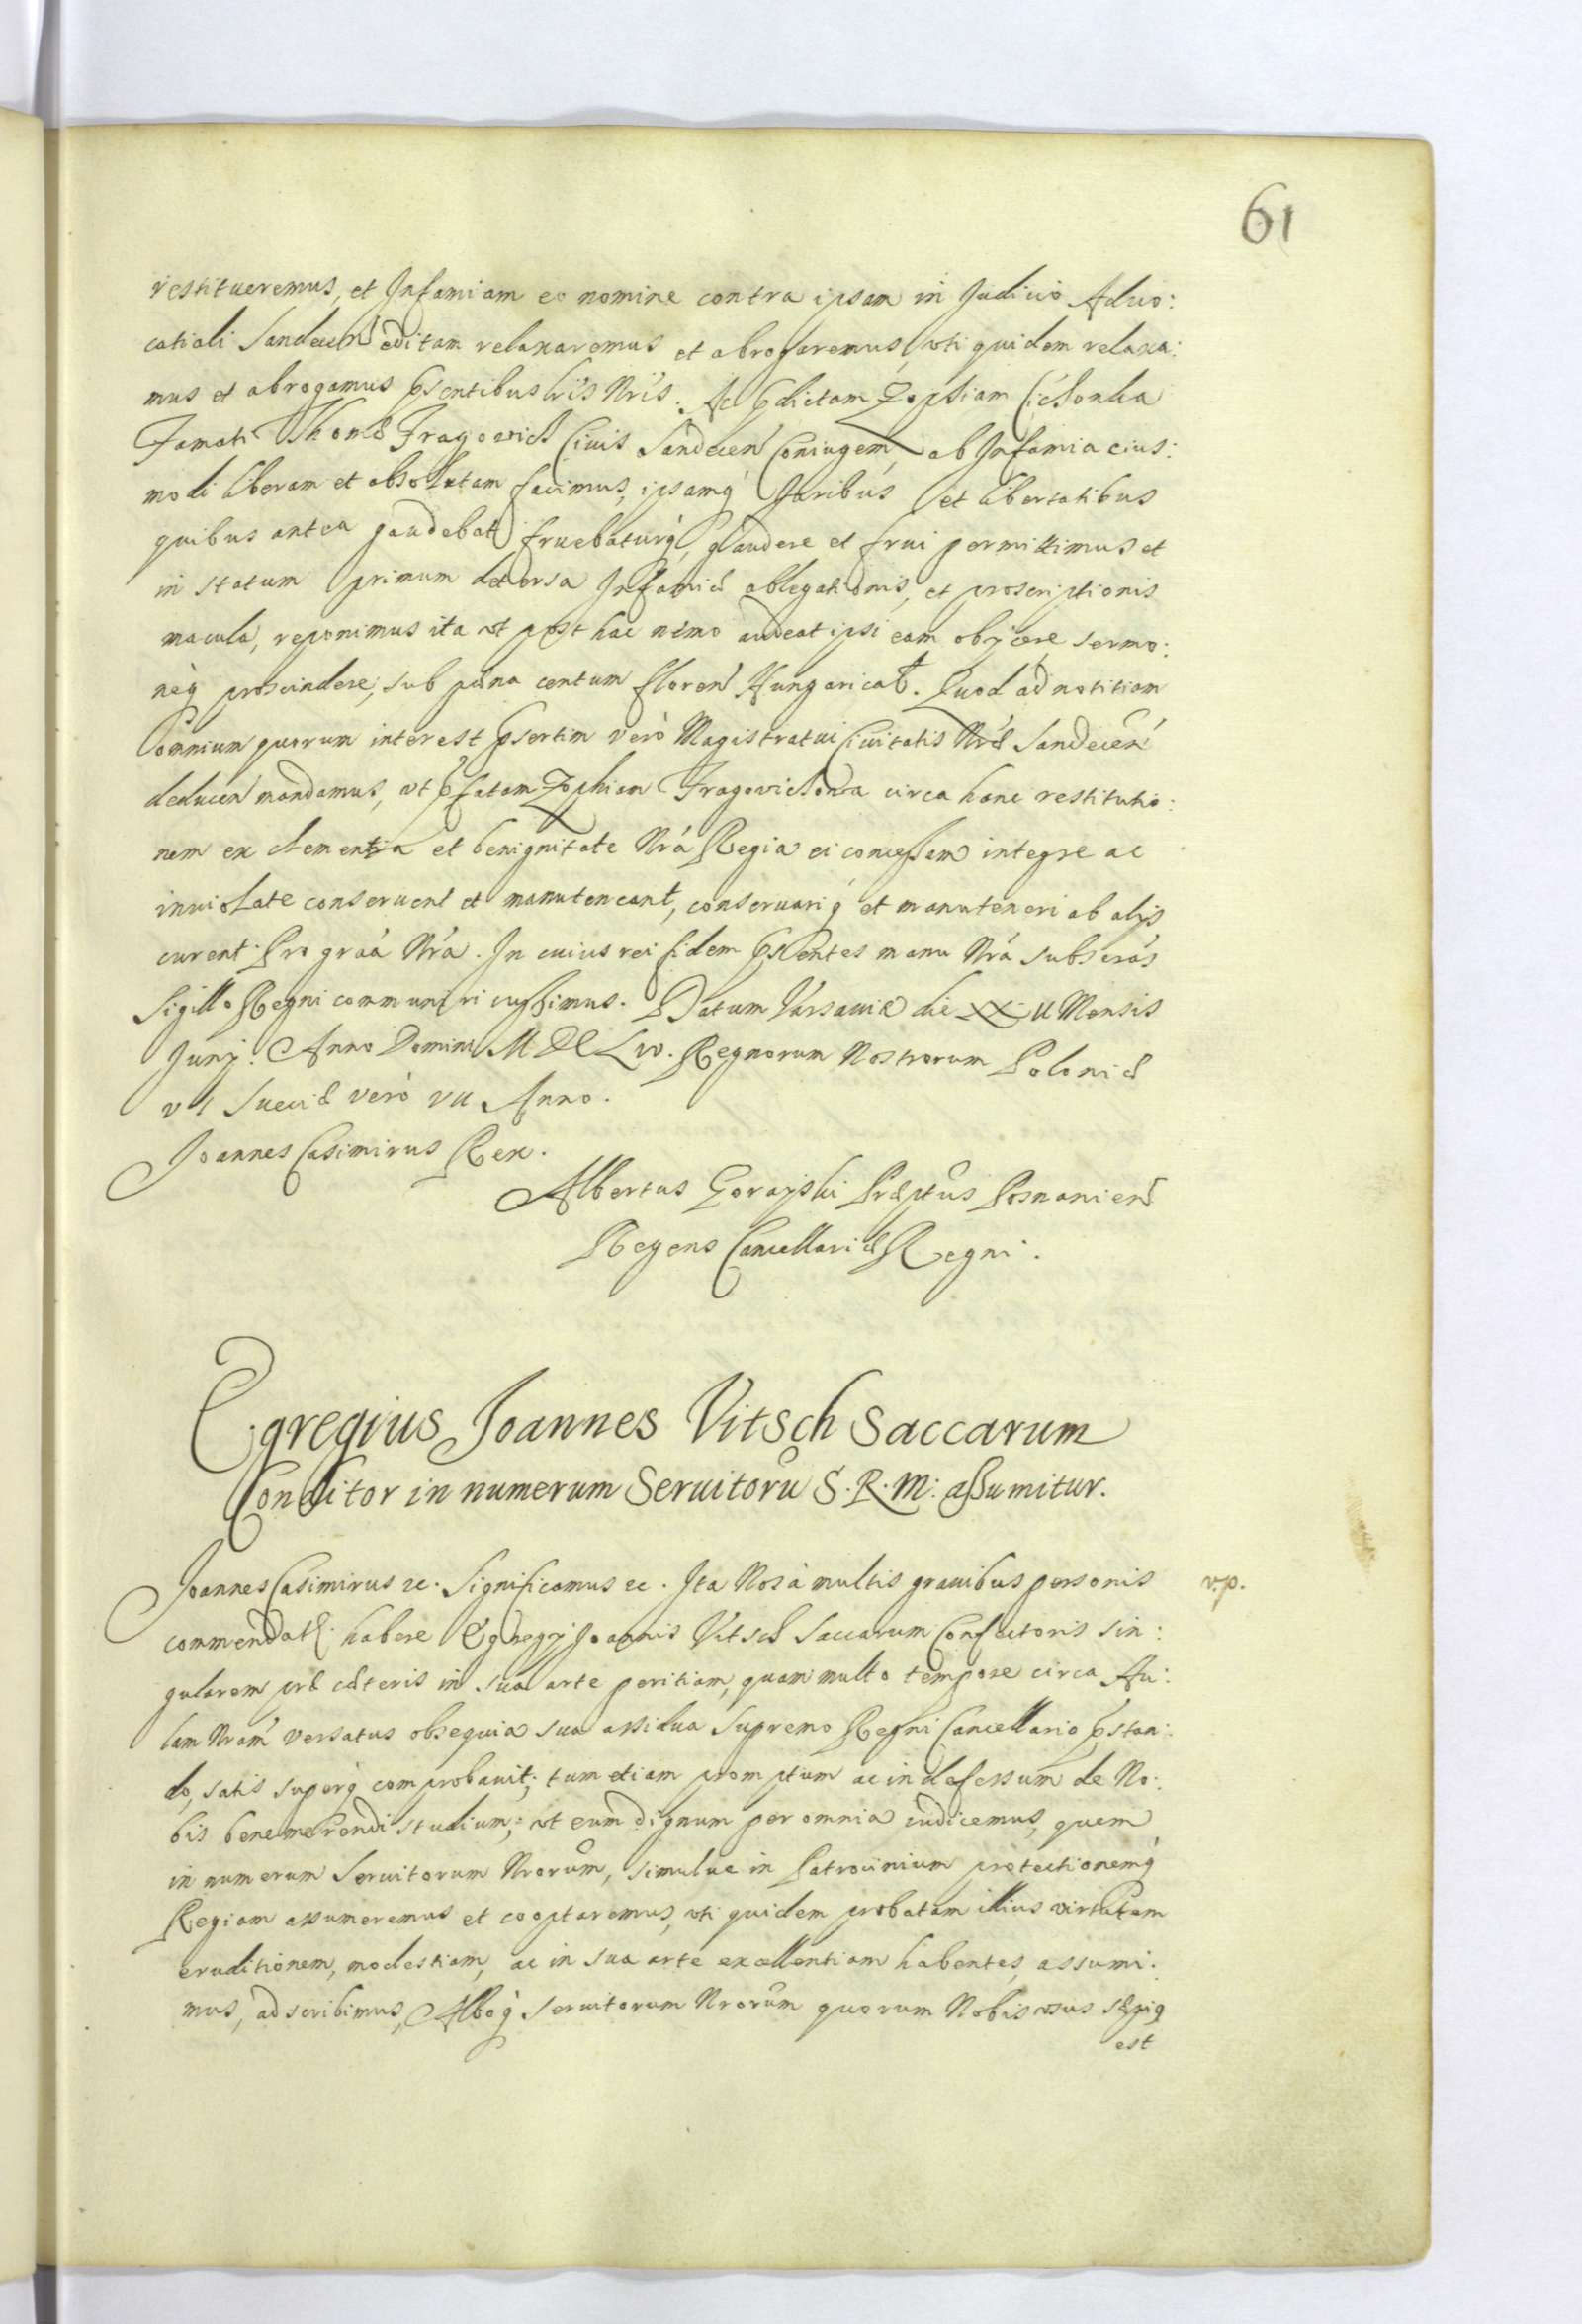 61
restitueremus, et Infamiam eo nomine contra ipsam in Judicio Aduo:
catiali Sandecen̄ editam relaxaremus et abrogaremus, uti quidem relaxa:
mus et abrogamus p̃sentibus lr̃is nr̃is. Ac p̃dictam Zophiam Cichonka
Famati Thomæ Fragowich Ciuis Sandecen̄ Coniugem, ab Infamia eius:
modi liberam et absolutam facimus, ipsamq́ Juribus et libertatibus
quibus antea gaudebat, fruebaturq́, gaudere et frui permittimus et
in statum primum detersa Infamiæ ablegationis, et proscriptionis
macula, reponimus ita ut post hac nemo audeat ipsi eam obijcere, sermo:
neq́ proscindere, sub pæna centum floren̄ Hungarical. Quod ad notitiam
omnium quorum interest p̃sertim verò Magistratui Ciuitatis Nr̃æ Sandecen̄
deducen̄ mandamus, ut p̃fatam Zophiam Fragovichowa circa hanc restitutio:
nem ex clementia et benignitate Nr̃a Regia ei concessam integre ac
inuiolate conseruent et manuteneant, conseruariq́ et manuteneri ab alijs
curent. Pro gr̃aa Nr̃a. In cuius rei fidem p̃sentes manu Nr̃a subscr̃as
Sigillo Regni communiri iussimus. Datum Varsauiæ die XXII Mensis
Junij. Anno Domini M DC Liv. Regnorum Nostrorum Poloniæ
vi Sueciæ verò vii Anno.
Joannes Casimirus Rex.
Albertus Gorayski Præptus Posnanien̄
Regens Cancellariæ Regni.
Egregius Joannes Vitsch Saccarum
Conditor in numerum Seruitorū S. R. M: assumitur.
Joannes Casimirus ec. Significamus ec. Ita Nos à multis grauibus personis
v.p.
commendatā habere Egregij Joannis Vitsch Saccarum Confectoris sin:
gularem præ cæteris in sua arte peritiam, quam multo tempore circa Au:
lam Nr̃am versatus obsequia sua assidua Supremo Regni Cancellario p̃stan:
do, satis superq́ comprobauit; tum etiam promptum ac indefessum de No:
bis benemerendi studium; ut eum dignum per omnia iudicemus, quem
in numerum Seruitorum Nr̃orum, simulac in Patrocinium protectionemq́
Regiam assumeremus et cooptaremus, uti quidem probatam illius virtutem
eruditionem, modestiam, ac in sua arte excellentiam habentes, assumi:
mus, adscribimus, Alboq́ Seruitorum Nr̃orum quorum Nobis usus sæpiq
est